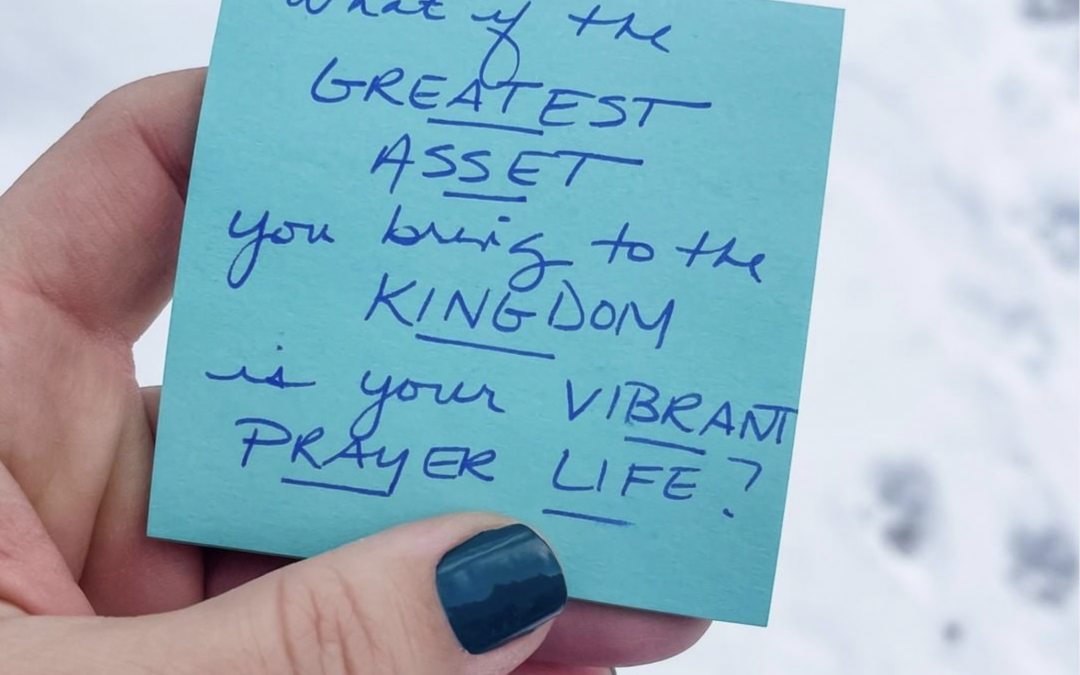 What if the
GREATEST
ASSET
you bring to the
KINGDOM
is your VIBRANT
PRAYER LIFE?